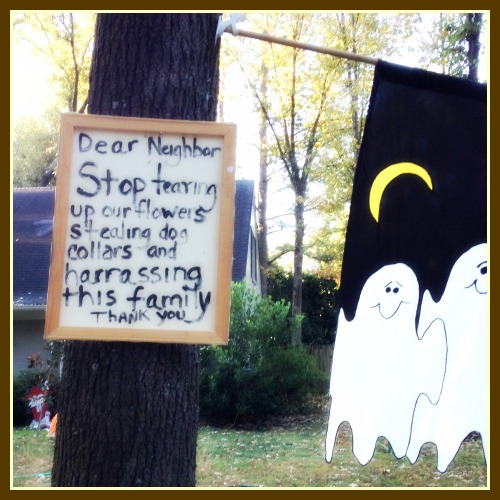 Dear Neighbor
Stop tearing
up our flowers
stealing dog
collars and
harrassing
this family
THANK YOU